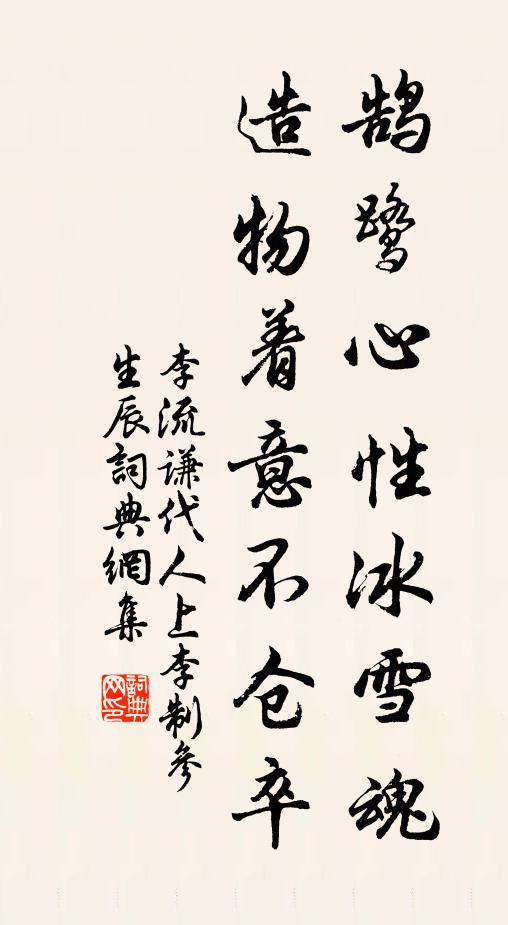 鹄鹭心性冰雪魂
造物着意不仓卒
李流谦代人上李制参
生辰詞典網集
詞典网印